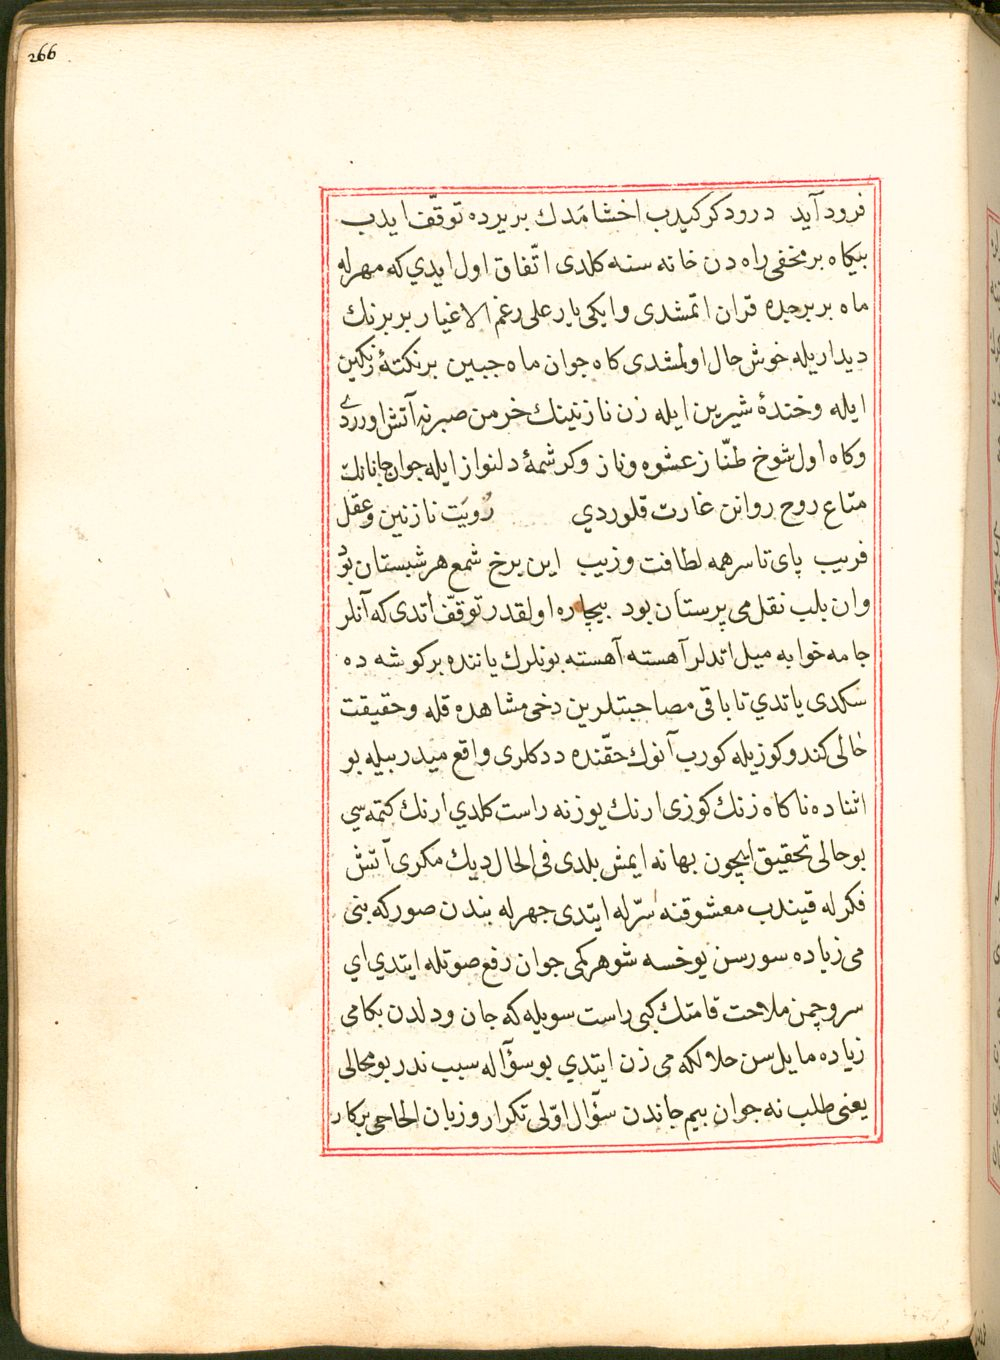 266
فرود آید درودكر كیدب اخشامدك بر یرده توقّف ایدب
بیكاه بر مخفی راه دن خانه سنه كلدی اتّفاق اول ایدي كه مهرله
ماه بر برجده قران اتمشدی و ایكی یار علی رغم الاغیار بر برنك
دیداریله خوش حال اولمشدی كاه جوان ماه جبین بر نكتهٔ رنكین
ایله و خندهٔ شیرین ایله زن نازنینك خرمن صبرنه آتش اوردی
وكاه اول شوخ طنّاز عشوه و ناز و كرشمهٔ دلنواز ایله جوان جانانك
متاع روح روانن غارت قلوردي دُو بَت نازنین و عقل
فریب پای تا سر همه لطافت و زیب این برخ شمع هر شبستان بود
وان بلب نقل می پرستان بود بیچاره اولقدر توقّف اتدی كه آنلر
جامه خوابه میل اتدلر آهسته آهسته بونلرك یاننده بر كوشه ده
سكدی یاتدي تا باقی مصاحبتلرین دخی مشاهده قله و حقیقت
حالی كندو كوزیله كورب آنوك حقّنده ددكلری واقع میدر بیله بو
اثناده ناكاه زنك كوزی ارنك یوزنه راست كلدي ارنك كتمه سي
بو حالی تحقیق ایچون بهانه ایمش بلدی فی الحال دیك مكری آتش
فكرله قیندب معشوقنه سرّله ایتدی جهرله بندن صور كه بنی
می زیاده سورسن یوخسه شوهركمی جوان رفع صوتله ایتدي ای
سرو چمن ملاحت قامتك كبی راست سویله كه جان و دلدن بكا می
زیاده مایل سن حلالكه می زن ایتدي بو سؤاله سبب ندر بو محالی
یعنی طلب نه جوان بیم جاندن سؤال اوّلی تكرار و زبان الحاحی بركار